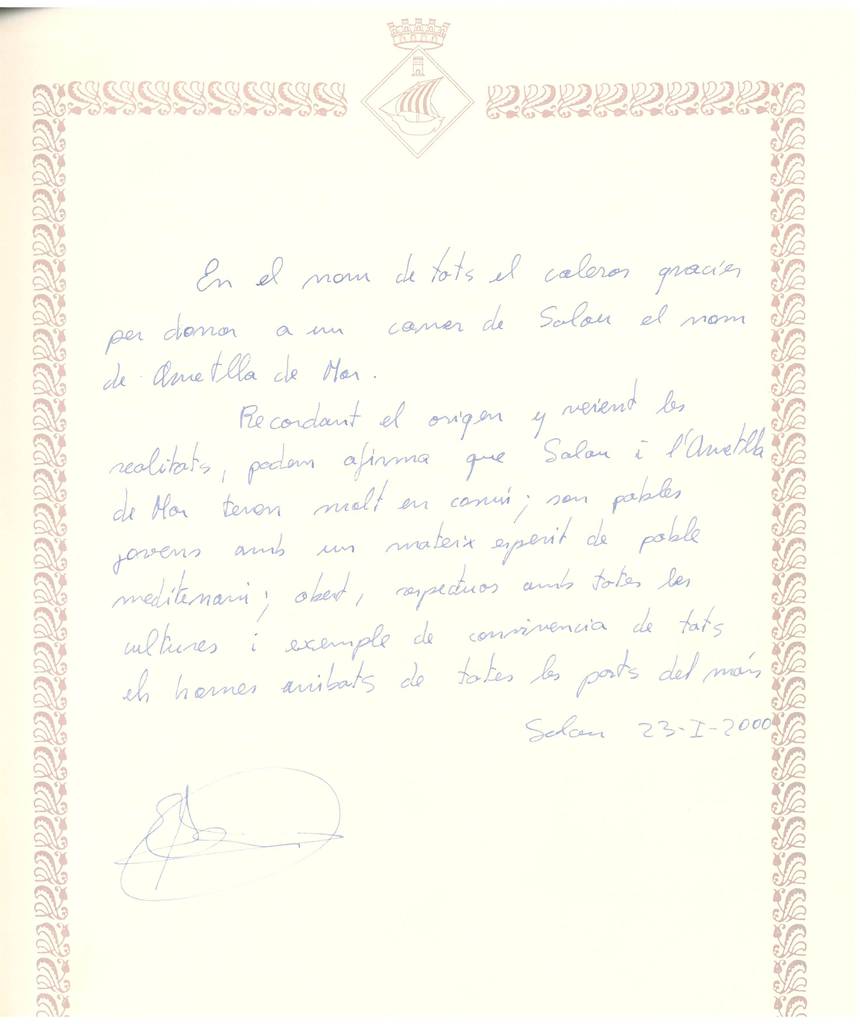 En el nom de tots el caleros gracies
per donar a un carrer de Salou el nom
de Ametlla de Mar.
Recordant el origen y veient les
realitats, podem afirma que Salou i l'Ametlla
de Mar tenen molt en comú; son pobles
jovens amb un mateix esperit de poble
mediterrani; obert, respectuos amb totes les
cultures i exemple de convivencia de tots
els homes arribats de totes les parts del món
Salou 23-I-2000